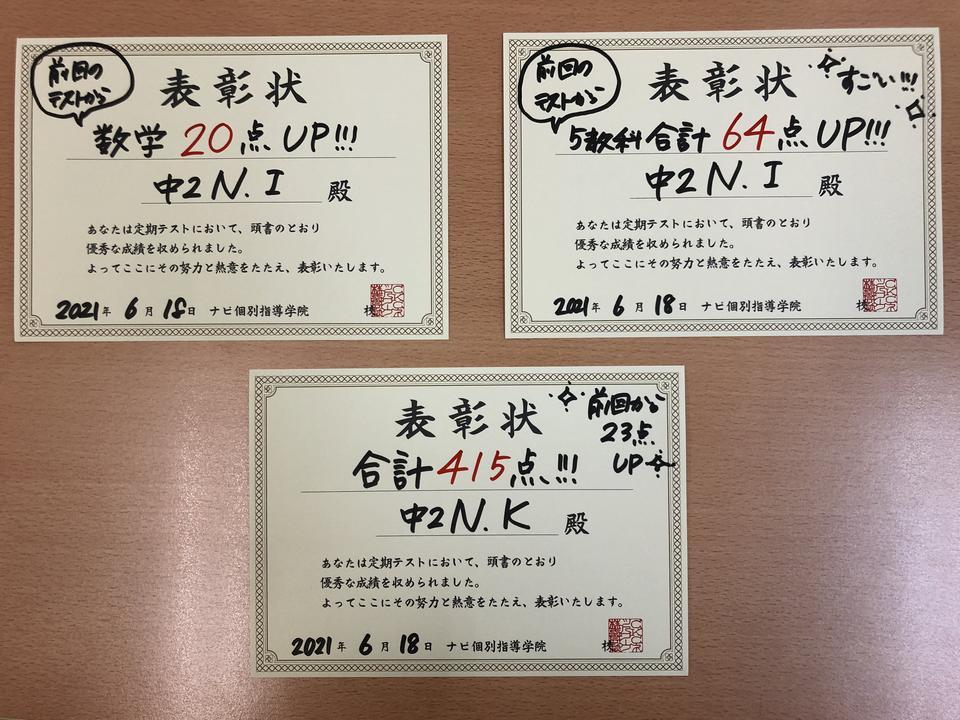 前回の
テストから
表彰状
数学 20点 UP!!!
中2 N. I 殿
あなたは定期テストにおいて、頭書のとおり
優秀な成績を収められました。
よってここにその努力と熱意をたたえ、表彰いたします。
2021年 6月 18日 ナビ個別指導学院
株
前回の
テストから
表彰状
すご〜い!!!
5教科合計 64点 UP!!!
中2 N. I 殿
あなたは定期テストにおいて、頭書のとおり
優秀な成績を収められました。
よってここにその努力と熱意をたたえ、表彰いたします。
2021年 6月 18日 ナビ個別指導学院
株
表彰状
前回から
23点
UP
合計 415点!!!
中2 N. K 殿
あなたは定期テストにおいて、頭書のとおり
優秀な成績を収められました。
よってここにその努力と熱意をたたえ、表彰いたします。
2021年 6月 18日 ナビ個別指導学院
株